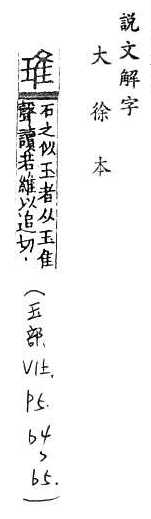 説文解字
大徐本
琟
石之似玉者从玉隹
聲讀若維以追切
(玉部、VI上、P5. 64、65.)